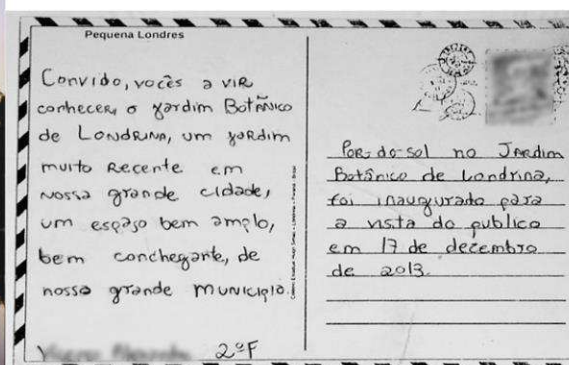 Pequena Londres
Convido, vocês a vir
conhecer, o yardim Botânico
de Londrina, um yardim
muito Recente em
nossa grande cidade,
um espaço bem amplo,
bem conchegante, de
nosso grande município.
2ºF
Por-do-sol no Jardim
Botânico de Londrina,
foi inaugurado para
a visita do publico
em 17 de décembro
de 2013.